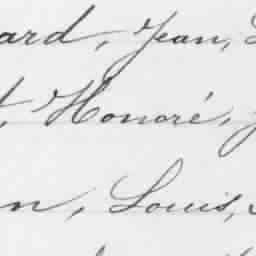 ard, Jean,
Honoré,
n, Louis,